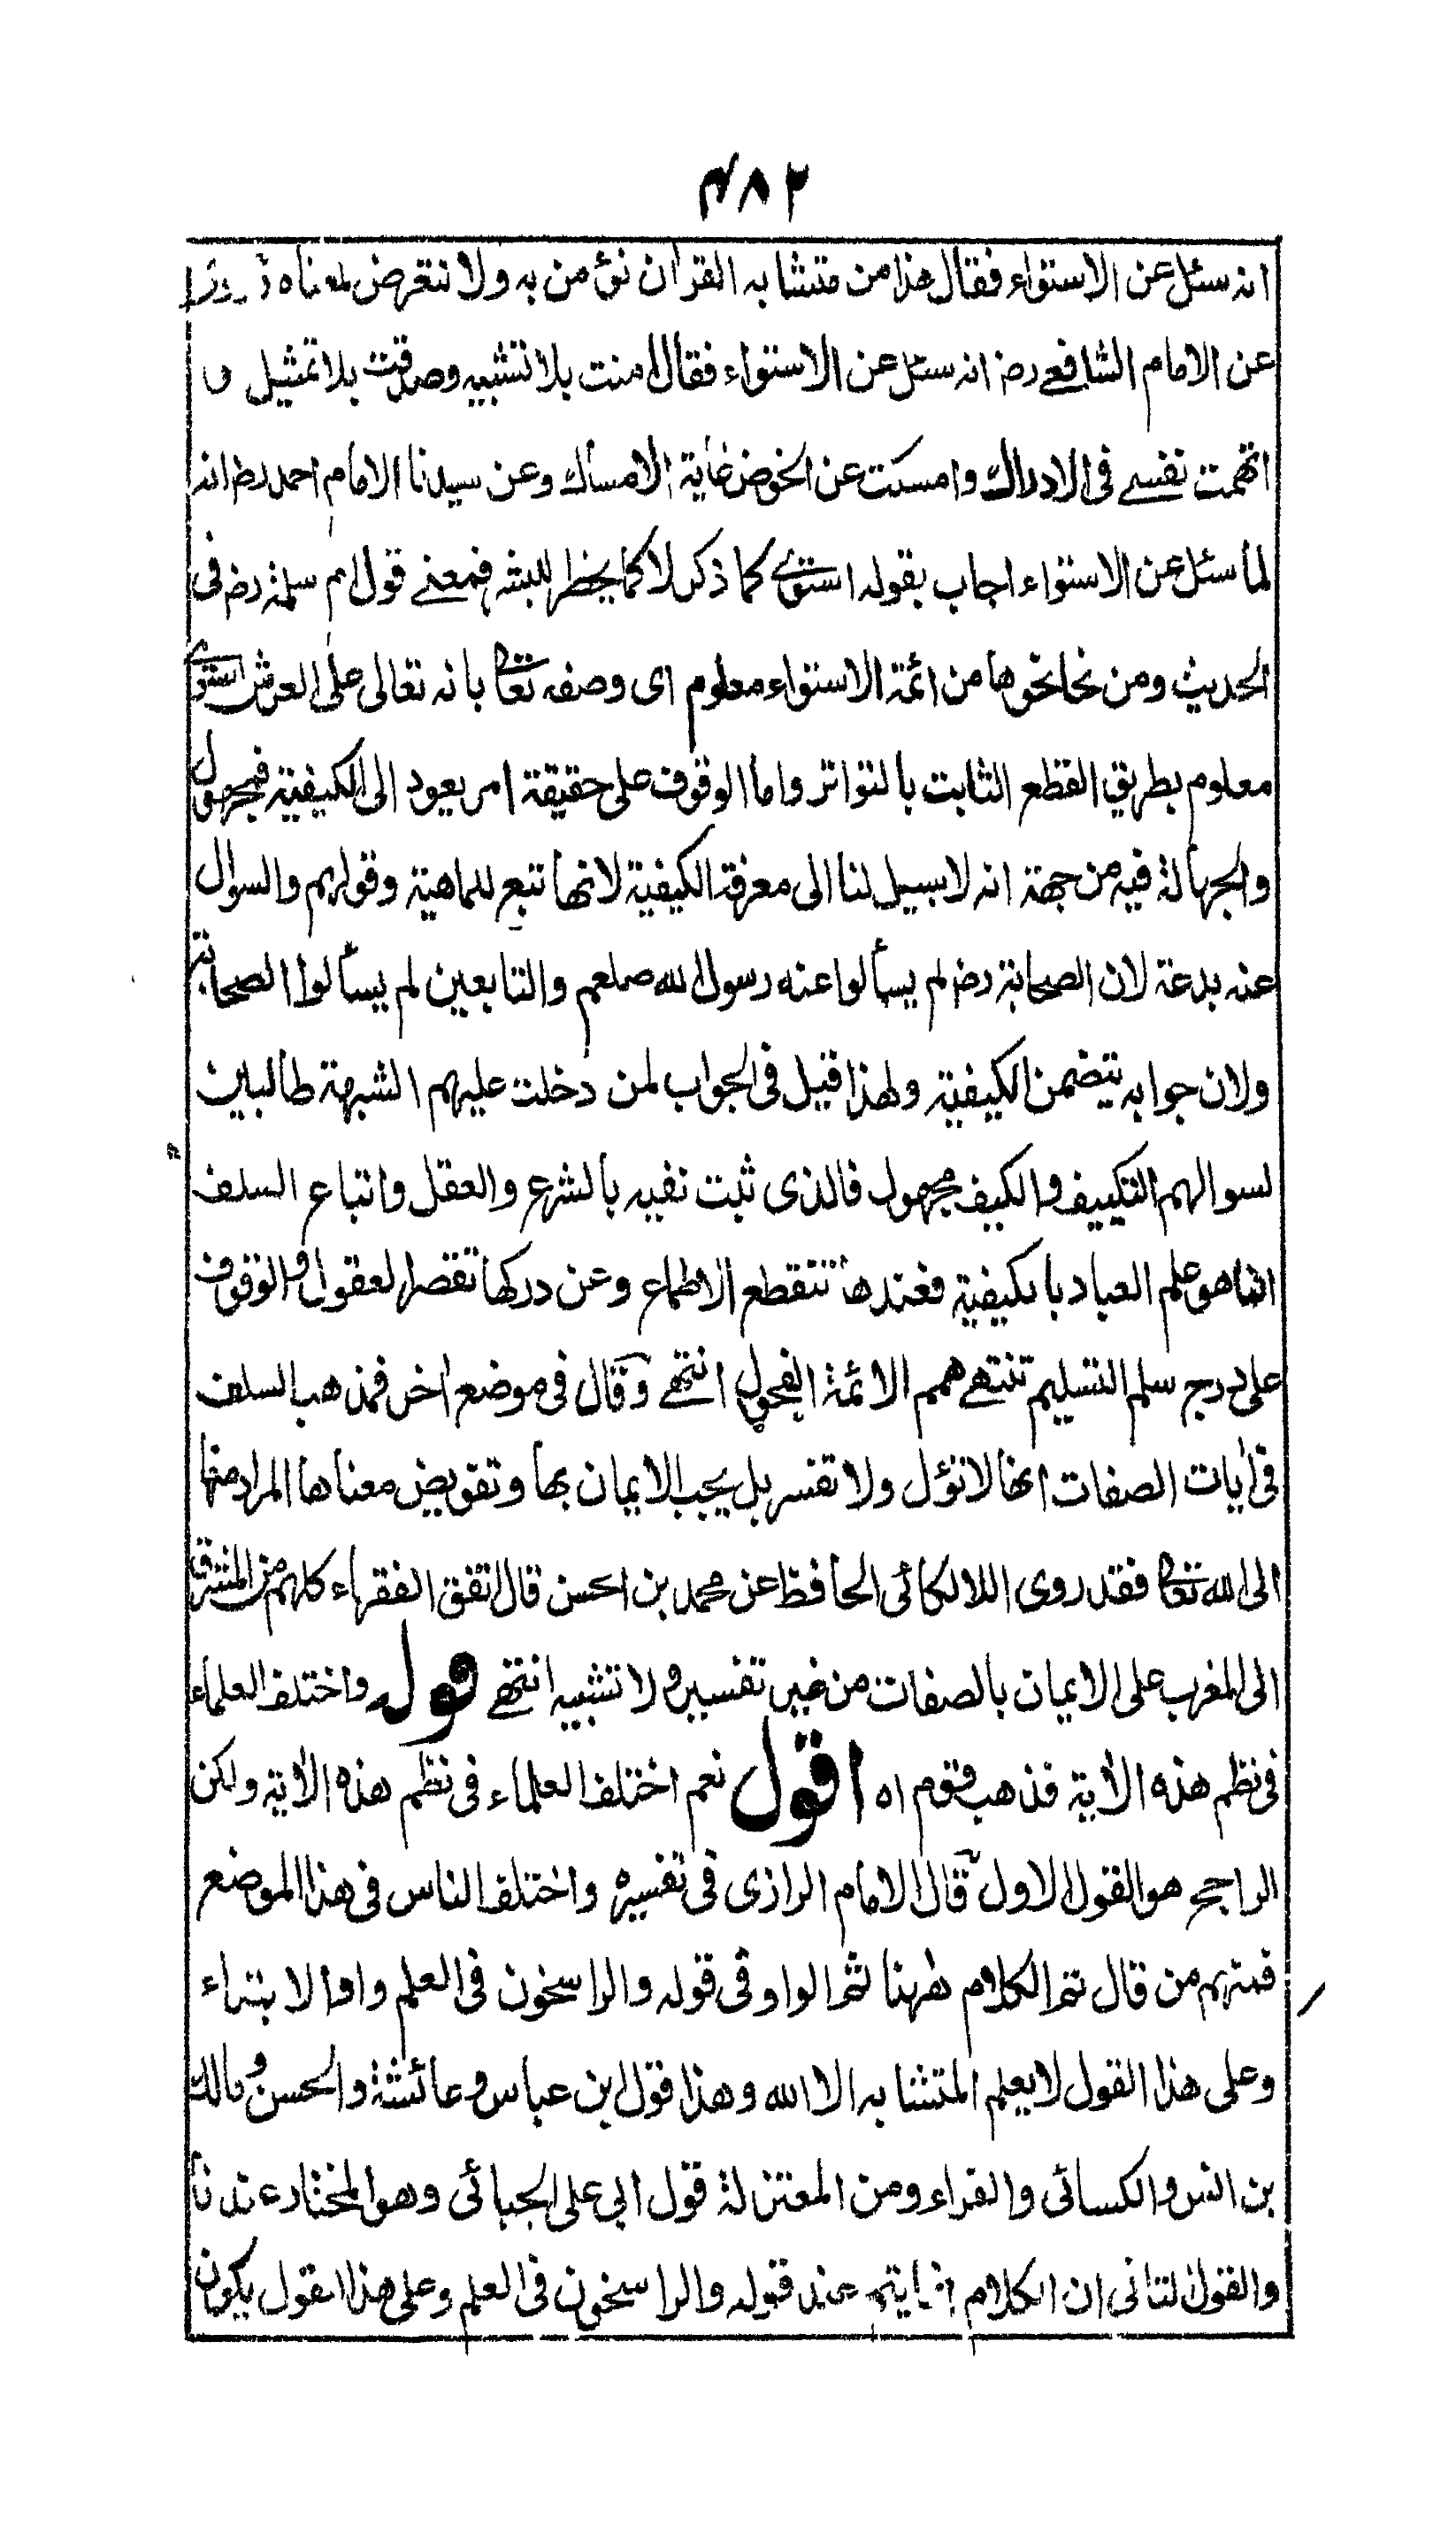 ۴۸۲
انه سئل عن الاستواء فقال هذا من متشابه القران نؤمن به ولا نتعرض لمعناه
عن الامام الشافعے رضـ انه سئل عن الاستواء فقال امنت بلا تشبيه وصدقت بلا تمثيل و
اتهمت نفسے فى الادراك وامسكت عن الخوض غاية الامساك وعن سيدنا الامام احمد رضـ انه
لما سئل عن الاستواء اجاب بقوله استوے كما ذكر لا كما يخطر للبشر فمعنے قول ام سلمة رضـ فى
الحديث ومن نحا نحوها من ائمة الاستواء معلوم اى وصفه تعا بانه تعالى على العرش استوے
معلوم بطريق القطع الثابت بالتواتر واما الوقوف على حقيقة امر يعود الى الكيفية فمجهول
والجهالة فيه من جهة انه لا سبيل لنا الى معرفة الكيفية لانها تتبع للماهية وقولهم والسوال
عنه بدعة لان الصحابة رضـ لم يسألوا عنه رسول الله صلعم والتابعين لم يسألوا الصحابة
ولان جوابه يتضمن الكيفية ولهذا قيل فى الجواب لمن دخلت عليهم الشبهة طالبين
لسوالهم التكييف والكيف مجهول فالذى ثبت نفيه بالشرع والعقل واتباع السلف
انما هو علم العباد بالكيفية فعندها تنقطع الاطماع وعن دركها تقصر العقول والوقوف
على درج سلم التسليم تنتهے همم الائمة الفحول انتهے وقال فى موضع اخر فمذهب السلف
فى ايات الصفات انها لا تؤل ولا تفسر بل يجب الايمان بها وتفويض معناها المراد منها
الى الله تعا فقد روى اللالكائى الحافظ عن محمد بن الحسن قال اتفق الفقهاء كلهم من المشرق
الى المغرب على الايمان بالصفات من غير تفسير ولا تشبيه انتهے قوله واختلف العلماء
فى نظم هذه الاية فذهب قوم اه اقول نعم اختلف العلماء فى نظم هذه الاية ولكن
الراجح هو القول الاول قال الامام الرازى فى تفسيره واختلف الناس فى هذا الموضع
فمنهم من قال تم الكلام ههنا ثم الواو فى قوله والراسخون فى العلم واو الابتداء
وعلى هذا القول لا يعلم المتشابه الا الله وهذا قول ابن عباس وعائشة والحسن ومالك
بن انس والكسائى والفراء ومن المعتزلة قول ابى على الجبائى وهو المختار عندنا
والقول الثانى ان الكلام انما يتم عند قوله والراسخون فى العلم وعلى هذا القول يكون